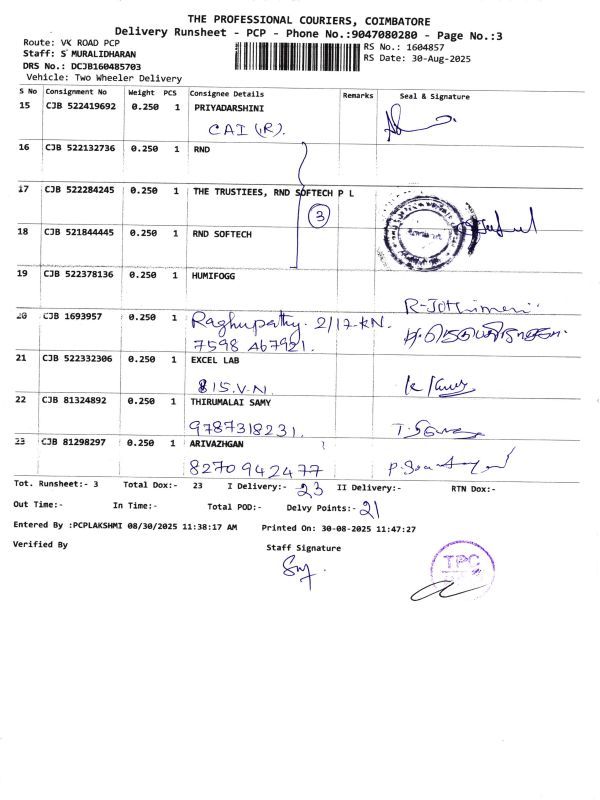 THE PROFESSIONAL COURIERS, COIMBATORE
Delivery Runsheet - PCP - Phone No.:9047080280 - Page No.:3
Route: VK ROAD PCP
Staff: S MURALIDHARAN
DRS No.: DCJB160485703
Vehicle: Two Wheeler Delivery
RS No.: 1604857
RS Date: 30-Aug-2025
S No Consignment No Weight PCS Consignee Details Remarks Seal & Signature
15 CJB 522419692 0.250 1 PRIYADARSHINI
CAI (R).
16 CJB 522132736 0.250 1 RND
17 CJB 522284245 0.250 1 THE TRUSTIEES, RND SOFTECH P L
3
18 CJB 521844445 0.250 1 RND SOFTECH
19 CJB 522378136 0.250 1 HUMIFOGG
20 CJB 1693957 0.250 1 Raghupathy. 2/17-KN.
7598 467921.
21 CJB 522332306 0.250 1 EXCEL LAB
15.V.N.
22 CJB 81324892 0.250 1 THIRUMALAI SAMY
9787318231.
23 CJB 81298297 0.250 1 ARIVAZHGAN
8270942477
Tot. Runsheet:- 3 Total Dox:- 23 I Delivery:- 23 II Delivery:- RTN Dox:-
Out Time:- In Time:- Total POD:- Delvy Points:- 21
Entered By :PCPLAKSHMI 08/30/2025 11:38:17 AM Printed On: 30-08-2025 11:47:27
Verified By
Staff Signature
TPC